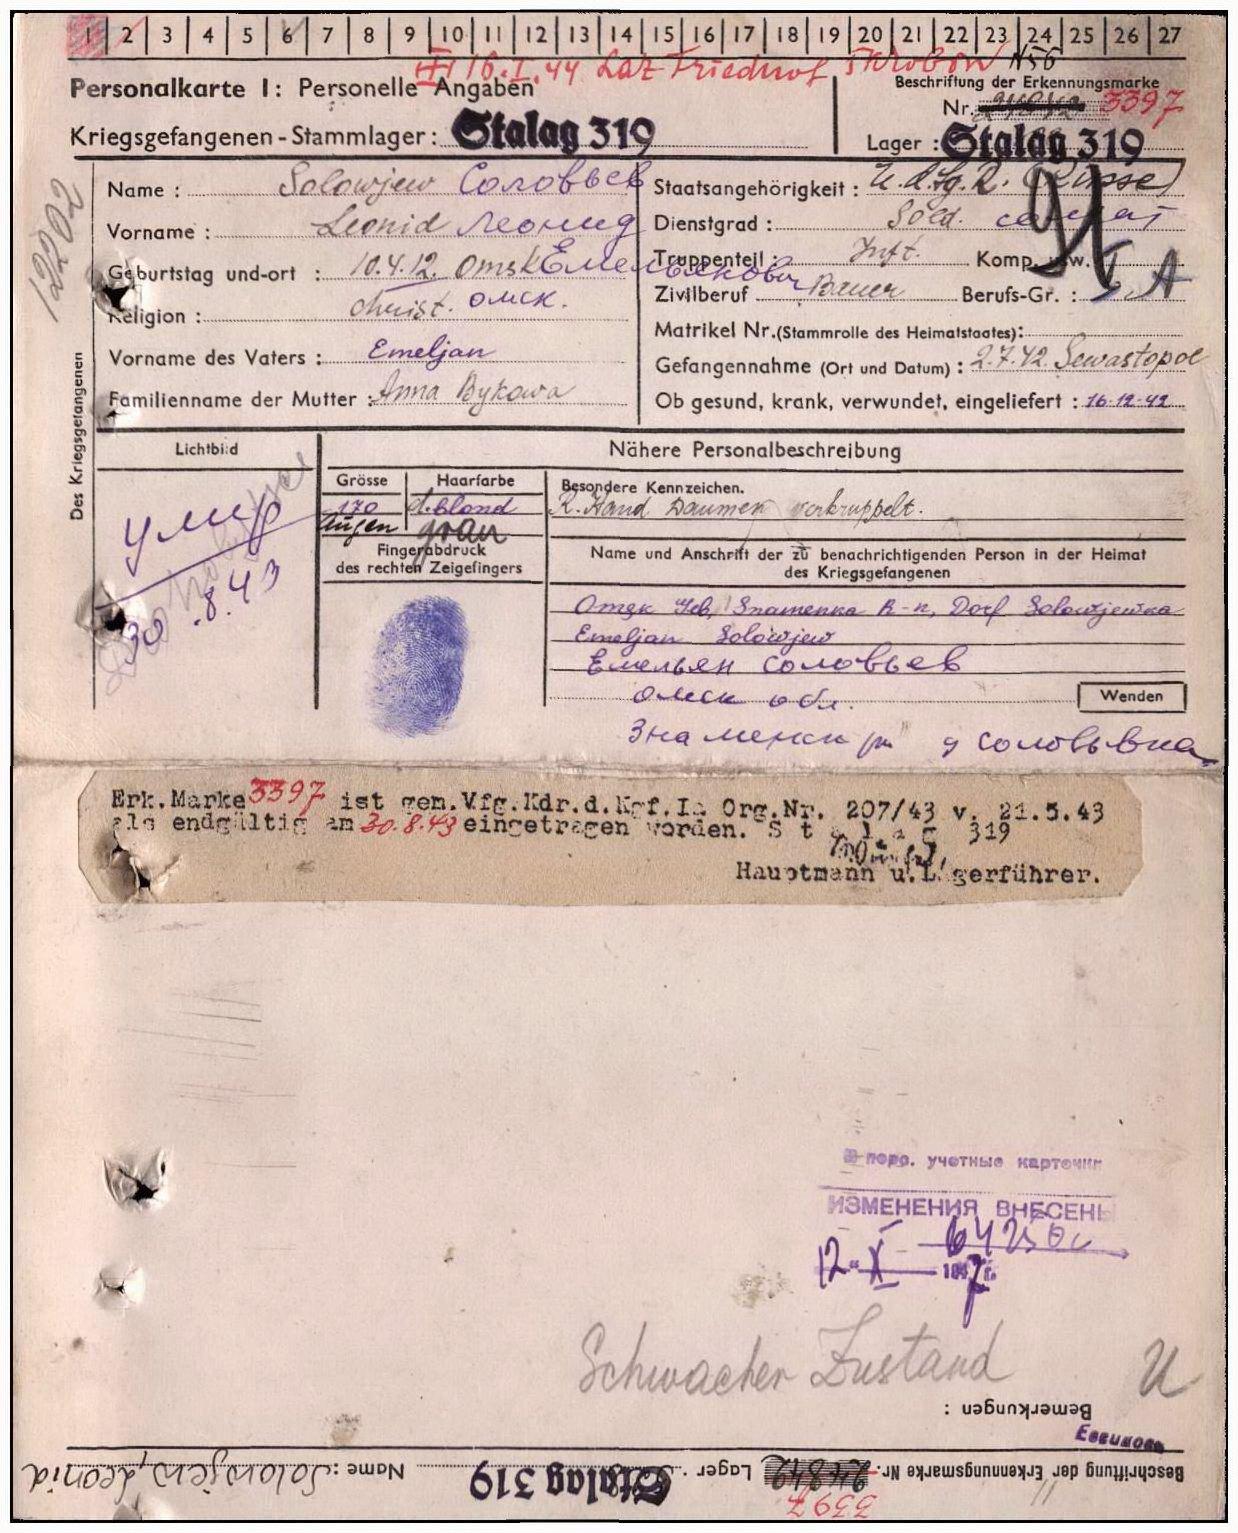 1 2 3 4 5 6 7 8 9 10 11 12 13 14 15 16 17 18 19 20 21 22 23 24 25 26 27
16.I.44 Laz Friedhof N56
Personalkarte I: Personelle Angaben
Beschriftung der Erkennungsmarke
Nr. 24842 3397
Kriegsgefangenen-Stammlager: Stalag 319
Lager: Stalag 319
Des Kriegsgefangenen
Name: Solowjew Соловьев
Vorname: Leonid Леонид
Geburtstag und -ort: 10.4.12. Omsk Емельянович
Religion: christ. омск.
Vorname des Vaters: Emeljan
Familienname der Mutter: Anna Bykowa
Staatsangehörigkeit: (Russe)
Dienstgrad: Sold. солдат
Truppenteil: Inft. Komp. usw.
Zivilberuf Bauer Berufs-Gr.: I. A
Matrikel Nr. (Stammrolle des Heimatstaates):
Gefangennahme (Ort und Datum): 2.7.42. Sewastopol
Ob gesund, krank, verwundet, eingeliefert: 16.12.42
Lichtbild
умер
30.8.43
Nähere Personalbeschreibung
Grösse Haarfarbe Besondere Kennzeichen.
170 d. blond R. Hand Daumen verkruppelt.
Augen grau
Fingerabdruck
des rechten Zeigefingers
Name und Anschrift der zu benachrichtigenden Person in der Heimat
des Kriegsgefangenen
Omsk Geb, Snamenka R-n, Dorf Solowjewka
Emeljan Solowjew
Емельян Соловьев
омск обл.
Wenden
Знаменск рн д Соловьвка
Erk.Marke 3397 ist gem.Vfg.Kdr.d.Kgf.Ia Org.Nr. 207/43 v. 21.5.43
als endgültig am 30.8.43 eingetragen worden. S t a l a g 319
Hauptmann u.Lagerführer.
В перс. учетные карточки
ИЗМЕНЕНИЯ ВНЕСЕНЫ
12 X 1947 г.
Schwacher Zustand
U
Bemerkungen:
Beschriftung der Erkennungsmarke Nr. 24842 Lager: Stalag 319 Name: Solowjew, Leonid
3397